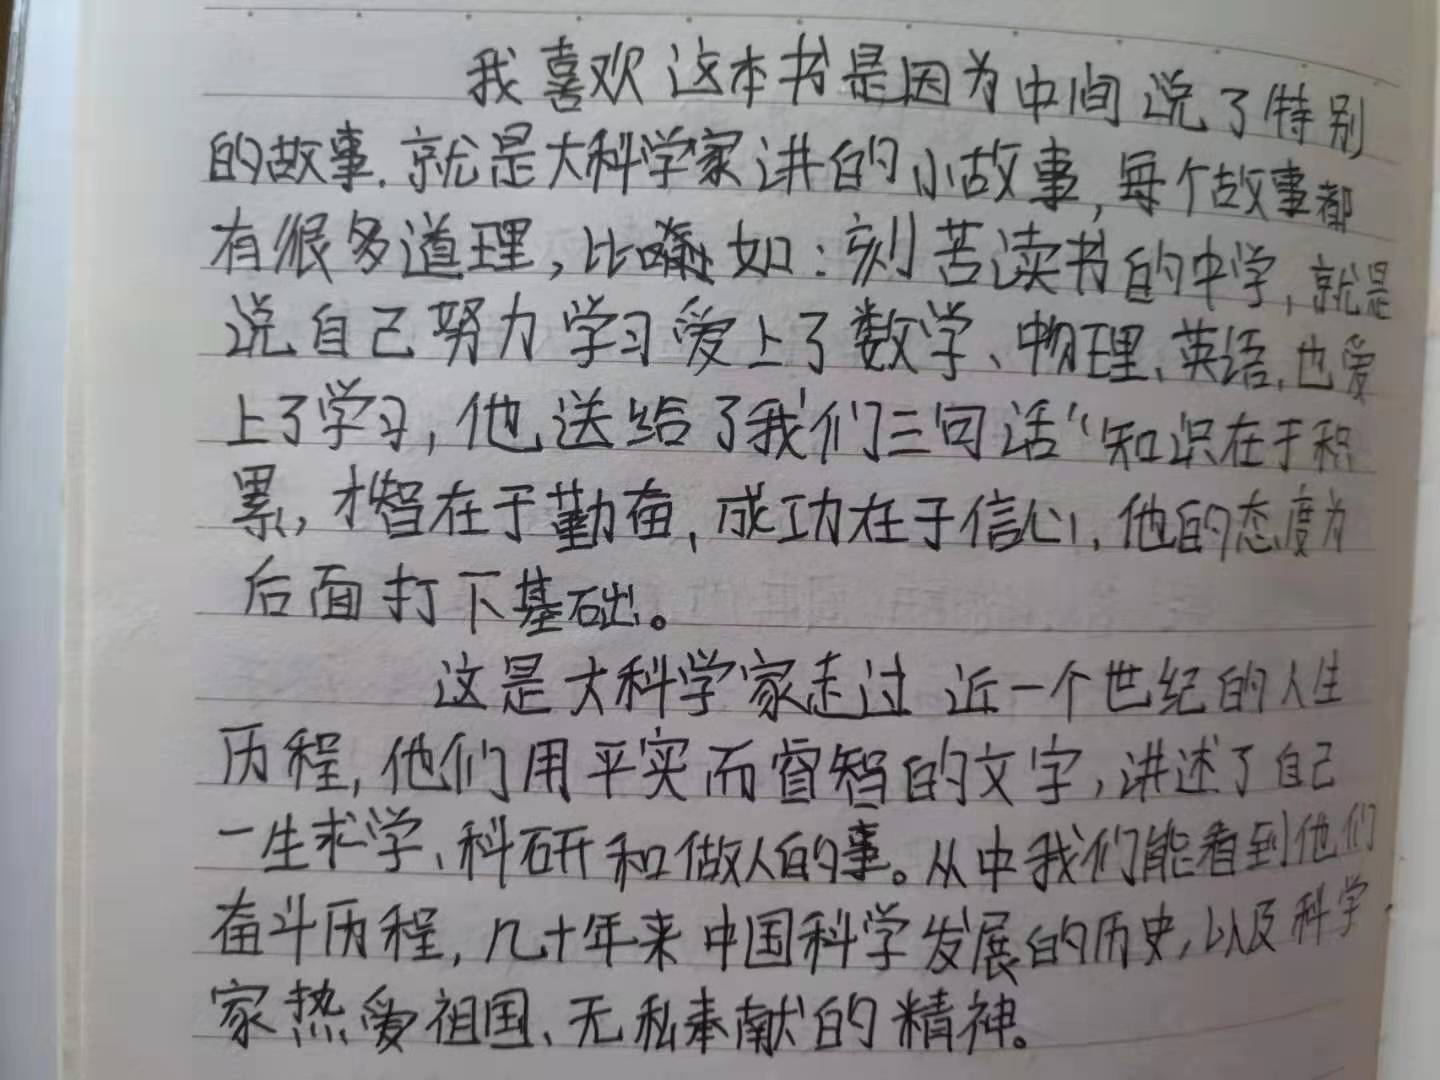 我喜欢这本书是因为中间说了特别
的故事.就是大科学家讲的小故事,每个故事都
有很多道理,比如:刻苦读书的中学,就是
说自己努力学习爱上了数学、物理、英语,也爱
上了学习,他送给了我们三句话“知识在于积
累,才智在于勤奋,成功在于信心,他的态度为
后面打下基础。
这是大科学家走过近一个世纪的人生
历程,他们用平实而睿智的文字,讲述了自己
一生求学、科研和做人的事。从中我们能看到他们
奋斗历程,几十年来中国科学发展的历史,以及科学
家热爱祖国、无私奉献的精神。